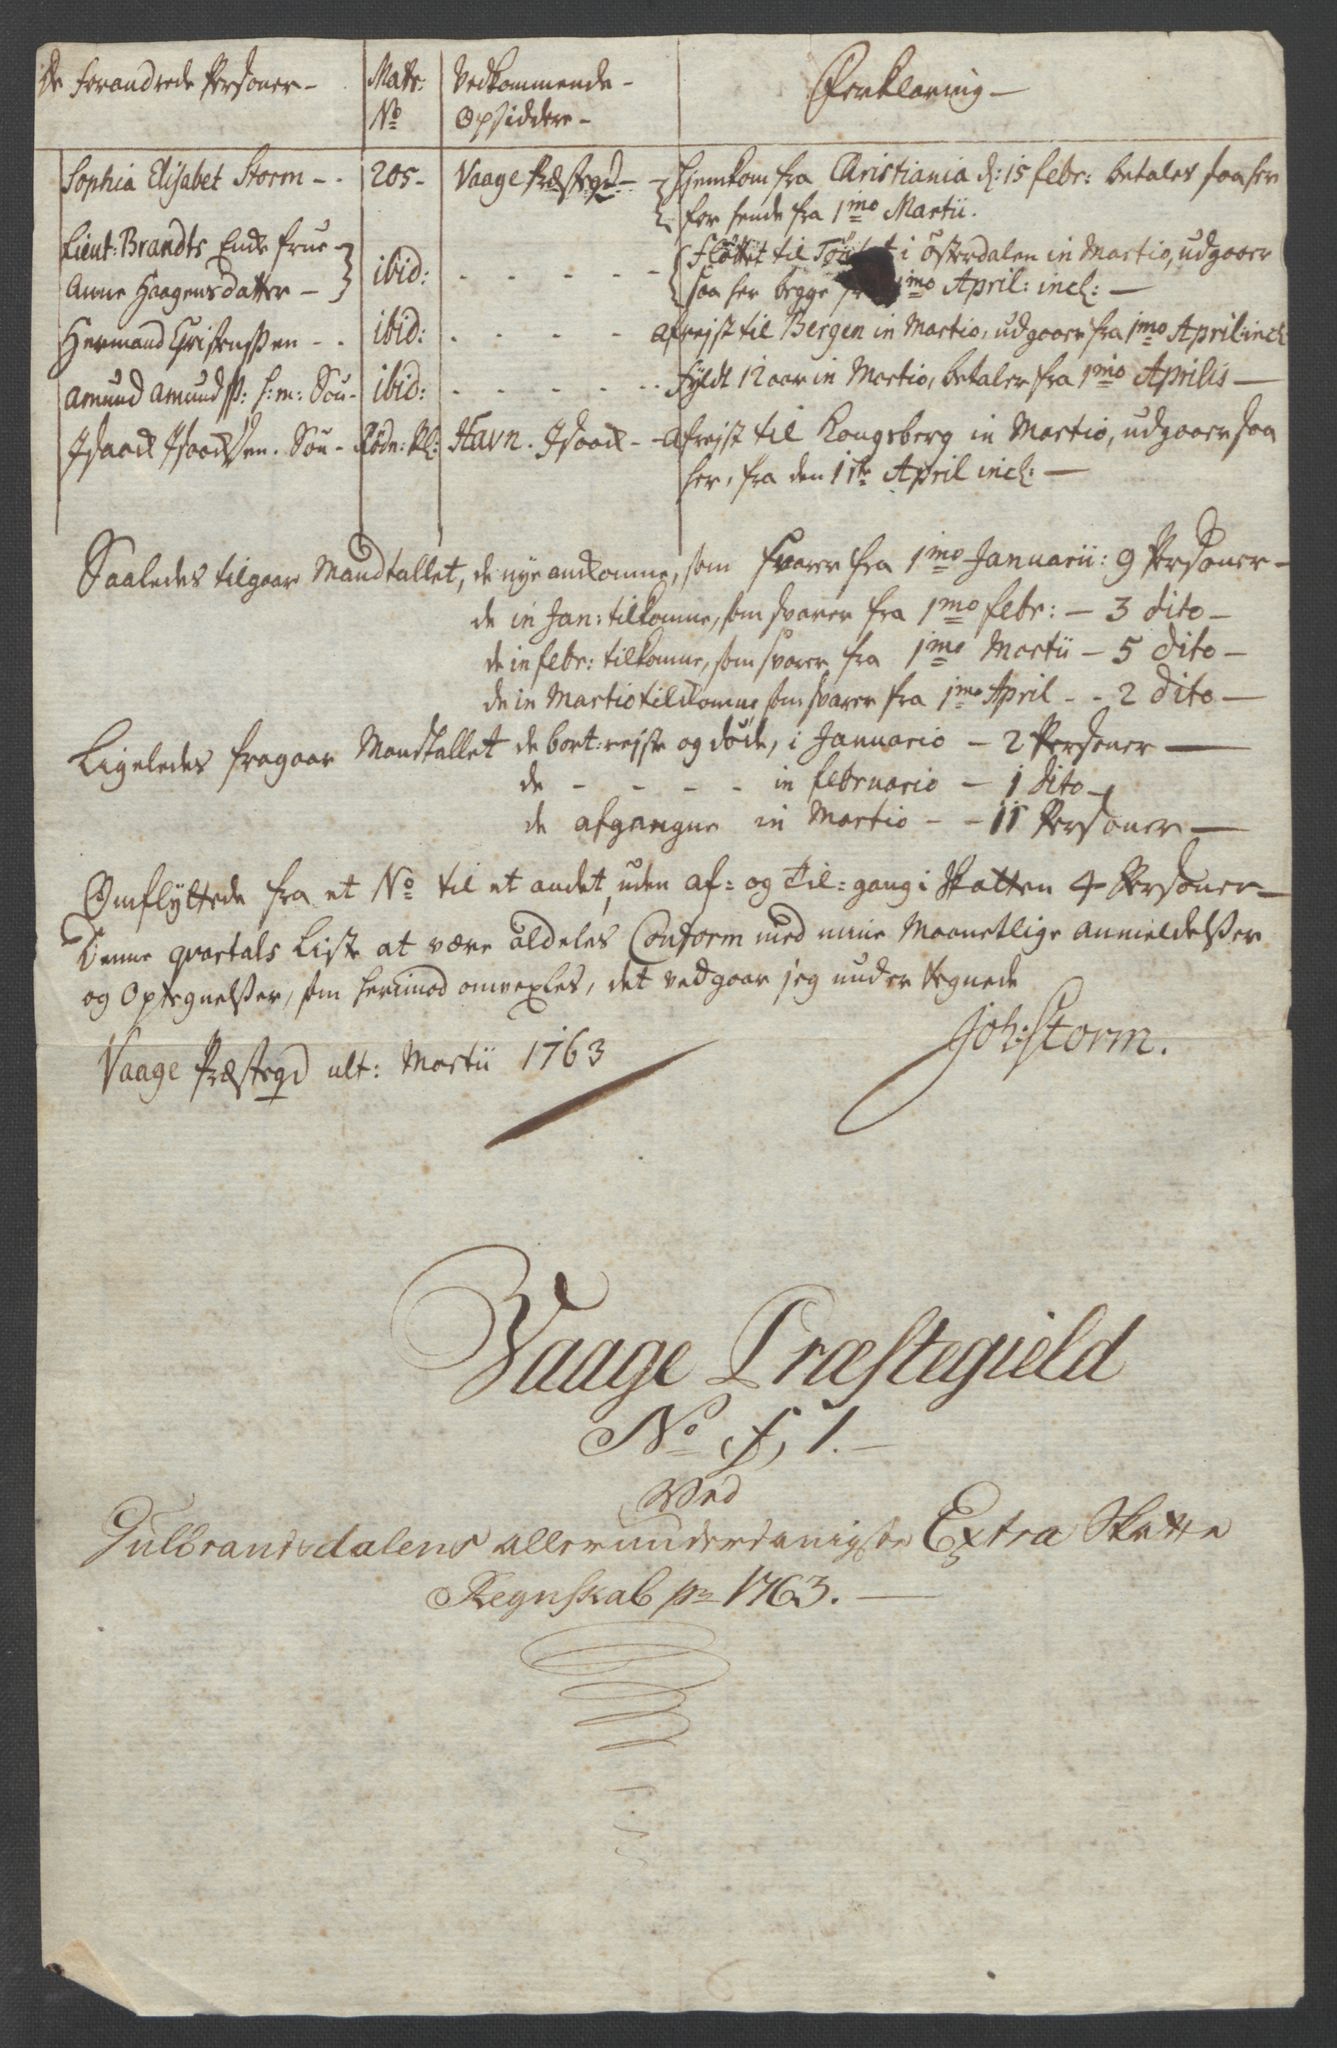 De forandrede Personer - Matr: No Vedkommende Opsiddere - Forklaring -
Sophia Elisabet Storm - - 205 - Vaage Præstegd - - hjemkom fra Christiania d: 15 febr: betales saa her
for hende fra 1mo Martii.
Lieut: Brandts Enke frue - Fløttet til i Østerdalen in Martio, udgaaer
Anne Haagensdatter - ibid: - - - - - saa her begge 1mo April: incl: -
Hermand Christenssen - - ibid: - - - - afrejst til Bergen in Martio, udgaaer fra 1mo April: incl
Amund Amundss: h: m: Søn - ibid: - - - - - fyldt 12 aar in Martio, betaler fra 1mo Aprilis -
Isaack Isaacksen. Søn - Rødn: kl: Havn. Isaack - - afrejst til Kongsberg in Martio, udgaaer saa
her, fra den 1ste April incl: -
Saaledes tilgaar Mandtallet, de nye ankomne, som svarer fra 1mo Januarii: 9 Personer -
de in Jan: tilkomne, som svarer fra 1mo febr: - 3 dito -
de in febr: tilkomne, som svarer fra 1mo Martii - 5 dito -
de in Martio tilkomne som svarer fra 1mo April - - 2 dito -
Ligeledes fragaar Mandtallet de bort: rejste og døde, i Januario - 2 Personer -
de - - - - in februario - 1 dito -
de afgangne in Martio - - 11 Personer -
Omflyttede fra et No til et andet, uden af= og Til=gang i Skatten 4 Personer -
Denne qvartals Liste at være aldeles Conform med mine Maanetlige Anmeldelsser
og Optegnelsser, som herimod omvexles, det vedgaar jeg under tegnede
Vaage Præstegd ult: Martii 1763
Joh: Storm.
Vaage Præstegield
No f, 1. -
Ved
Gulbrandsdalens allerunderdanigste Extra Skatte
Regnskab pr 1763. -